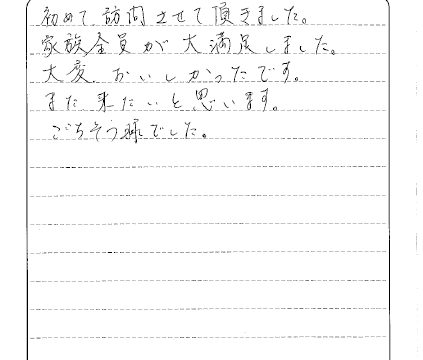 初めて訪問させて頂きました。
家族全員が大満足しました。
大変、おいしかったです。
また来たいと思います。
ごちそう様でした。